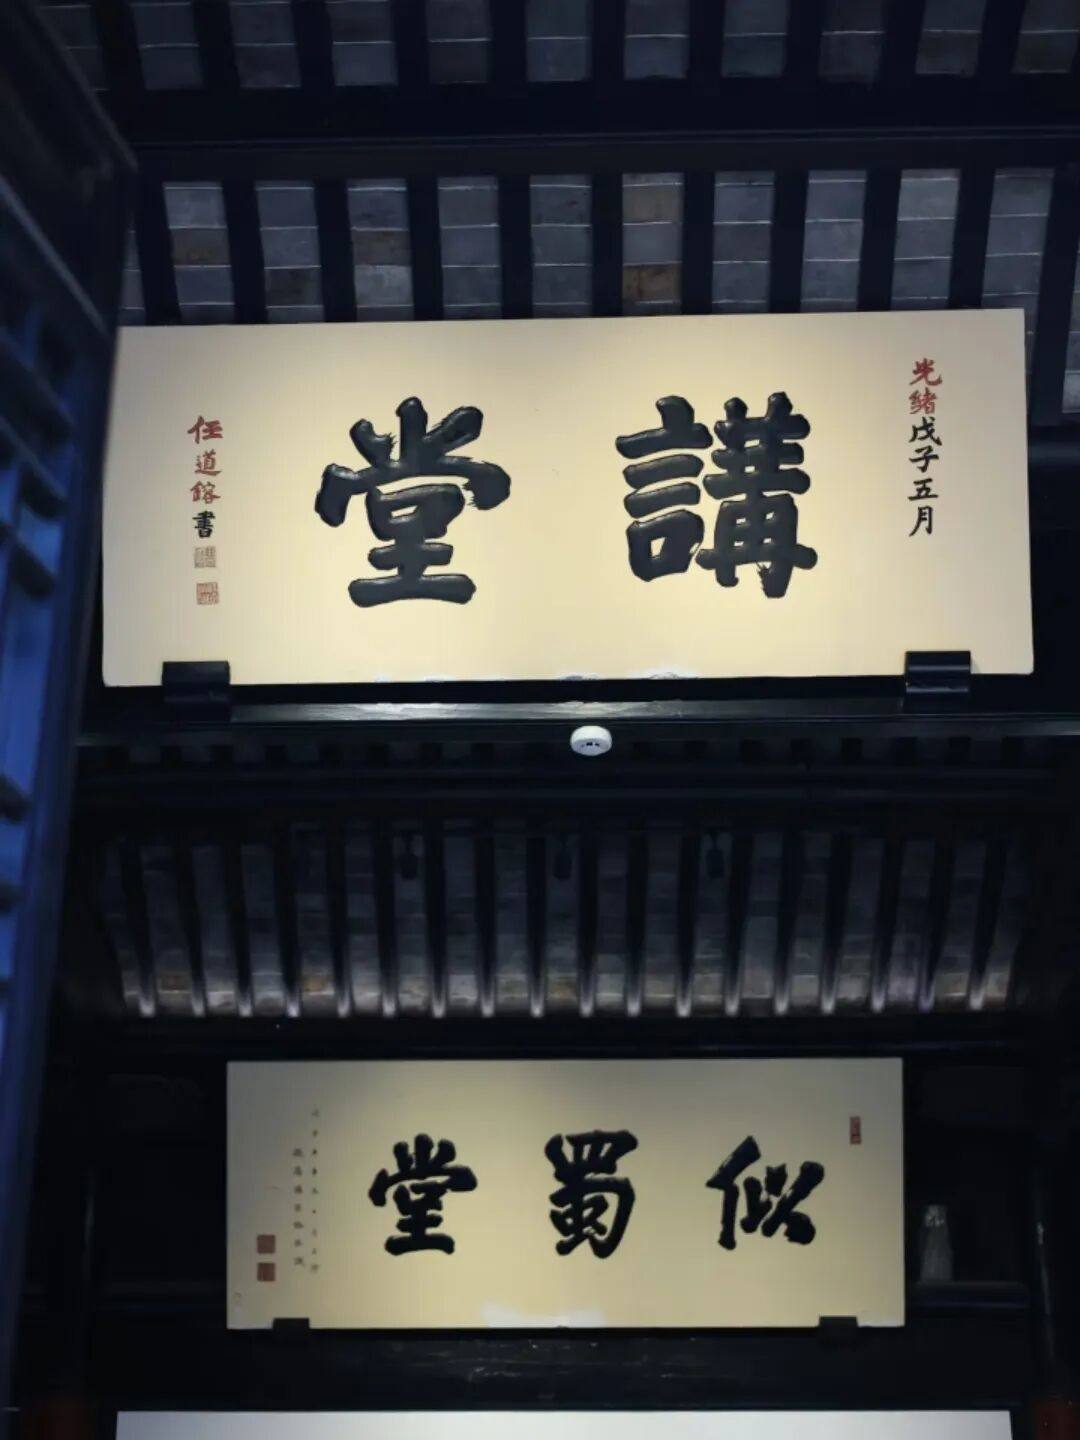 光緒戊子五月
講堂
任道鎔書
似蜀堂